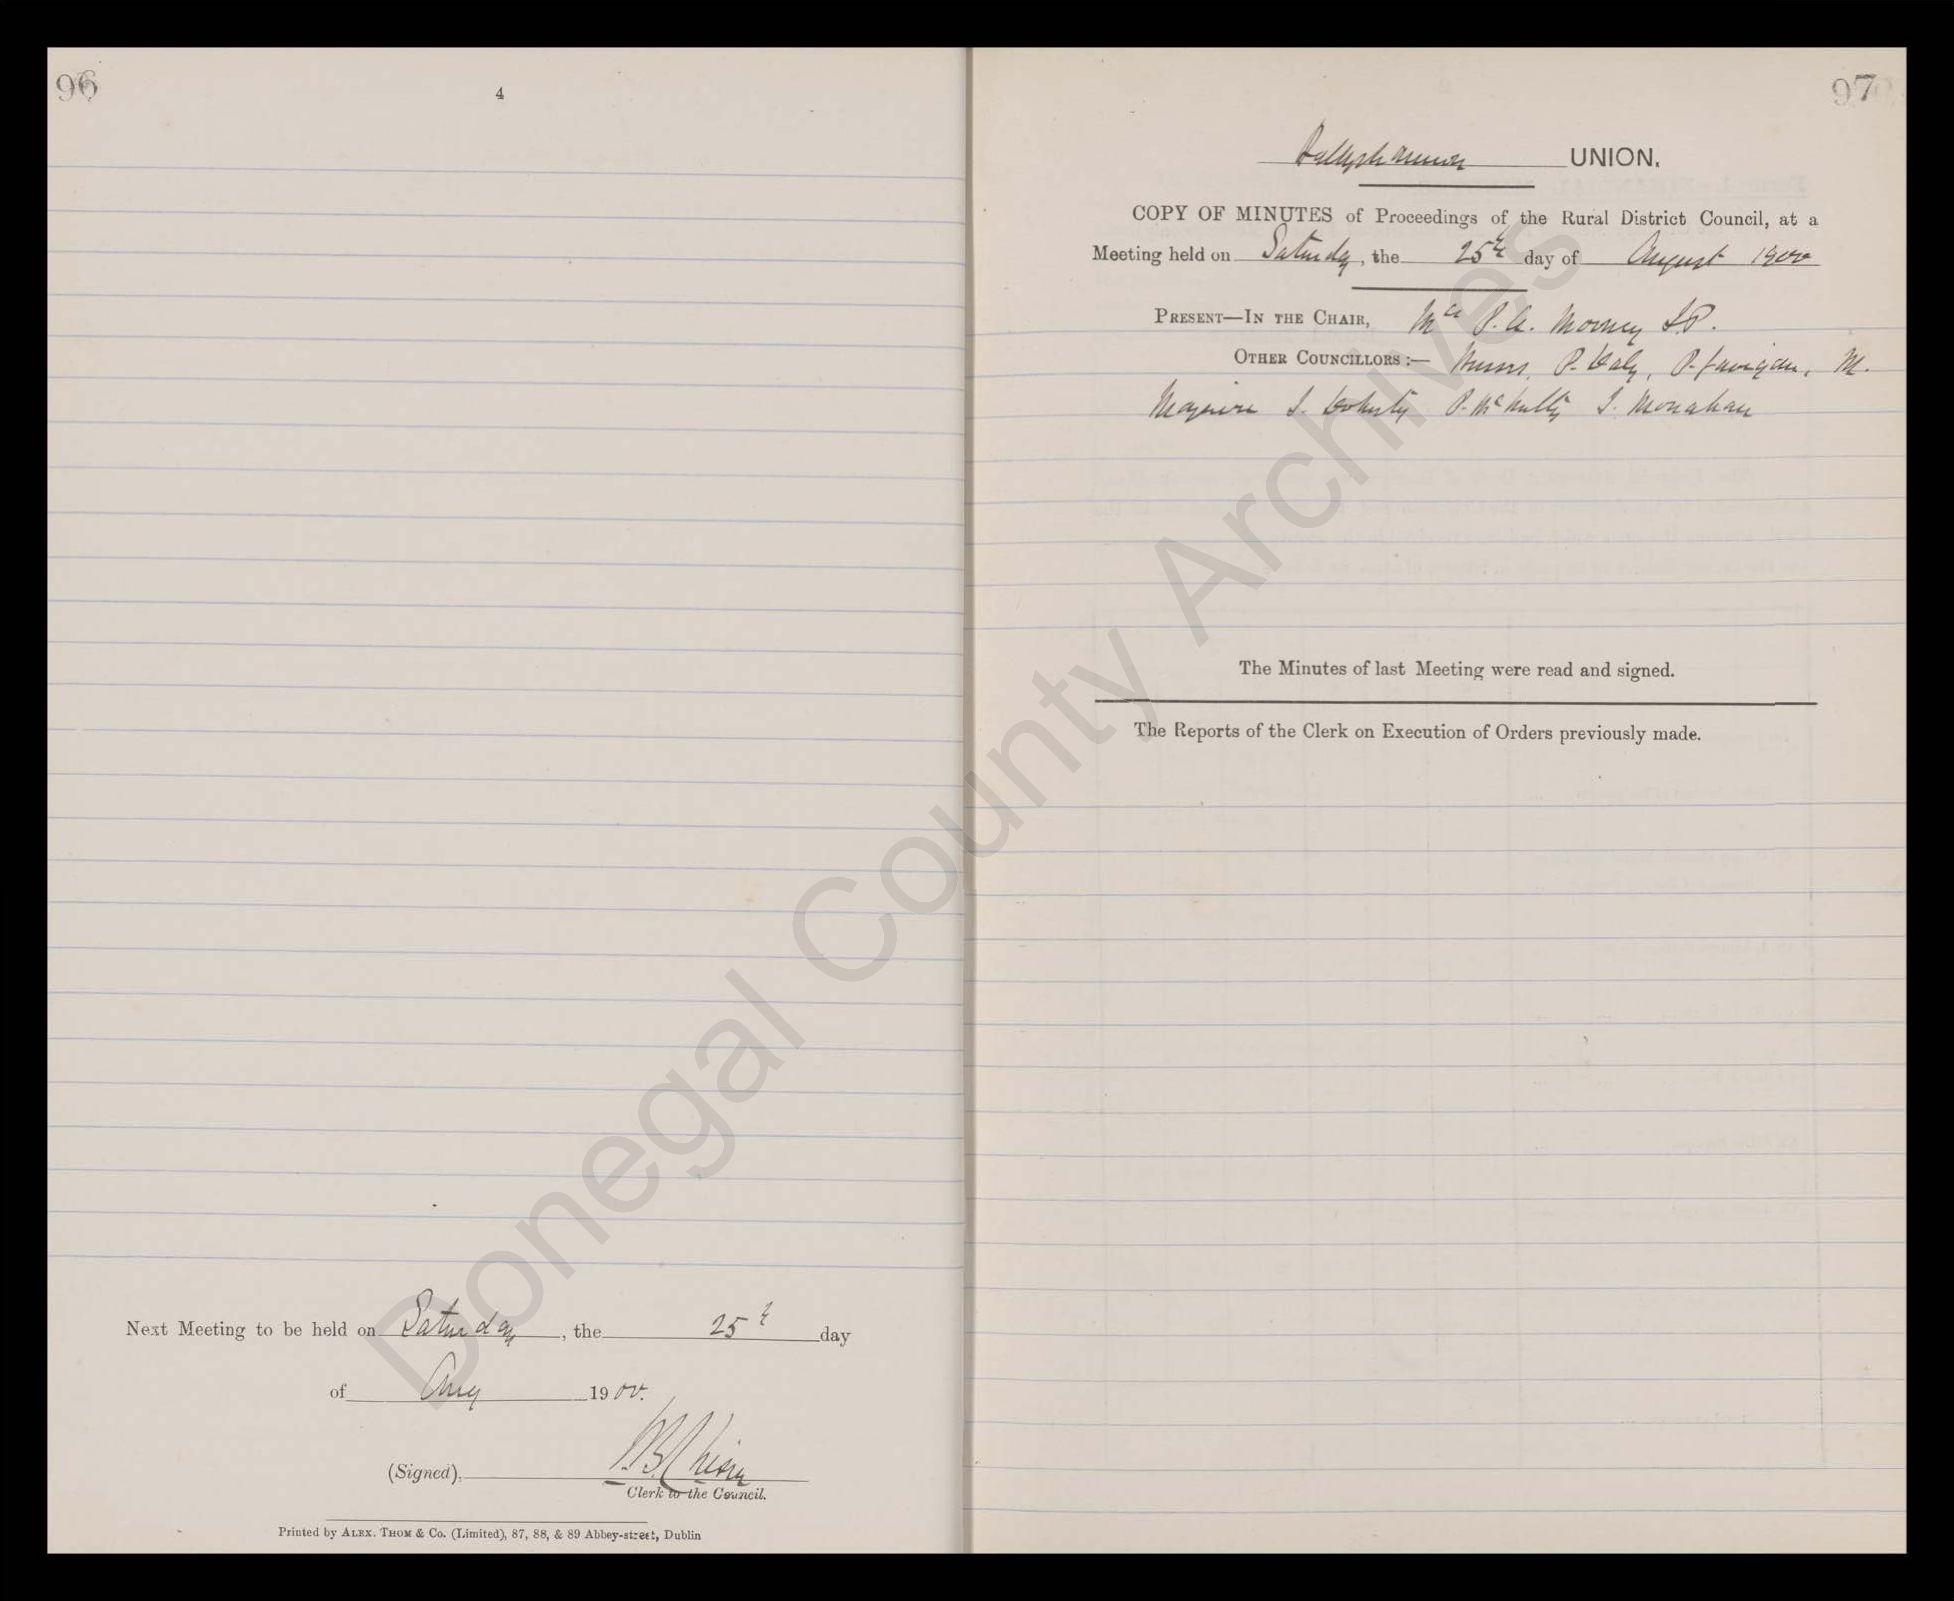 96
4
Next Meeting to be held on Saturday, the 25th day
of Aug 1900.
(Signed),
Clerk to the Council.
Printed by ALEX. THOM & Co. (Limited), 87, 88, & 89 Abbey-street, Dublin
97
Ballyshannon UNION.
COPY OF MINUTES of Proceedings of the Rural District Council, at a
Meeting held on Saturday, the 25th day of August 1900
PRESENT—IN THE CHAIR, Mr P. A. Mooney J.P.
OTHER COUNCILLORS:— Messrs. P. Daly, P. Gavigan, M.
Maguire J. Doherty P. McNulty J. Monahan
The Minutes of last Meeting were read and signed.
The Reports of the Clerk on Execution of Orders previously made.
Donegal County Archives